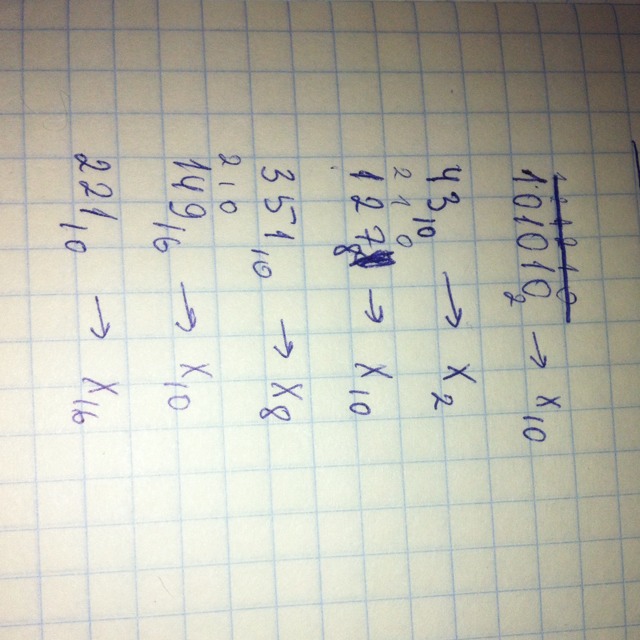 101010₂ → X₁₀
43₁₀ → X₂
2 1 0
127₈ → X₁₀
351₁₀ → X₈
2 1 0
149₁₆ → X₁₀
221₁₀ → X₁₆